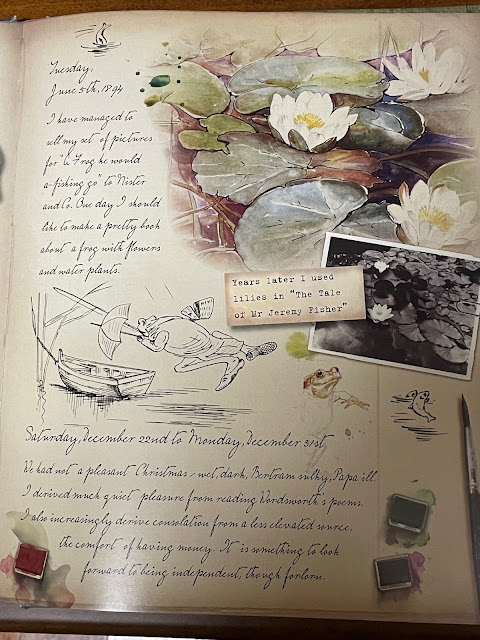 Tuesday,
June 5th, 1894
I have managed to
sell my set of pictures
for "A Frog he would
a-fishing go" to Nister
and Co. One day I should
like to make a pretty book
about a frog with flowers
and water plants.
Years later I used
lilies in "The Tale
of Mr Jeremy Fisher"
Saturday, December 22nd to Monday, December 31st
We had not a pleasant Christmas - wet, dark, Bertram sulky, Papa ill.
I derived much quiet pleasure from reading Wordsworth's poems.
I also increasingly derive consolation from a less elevated source,
the comfort of having money. It is something to look
forward to being independent, though forlorn.